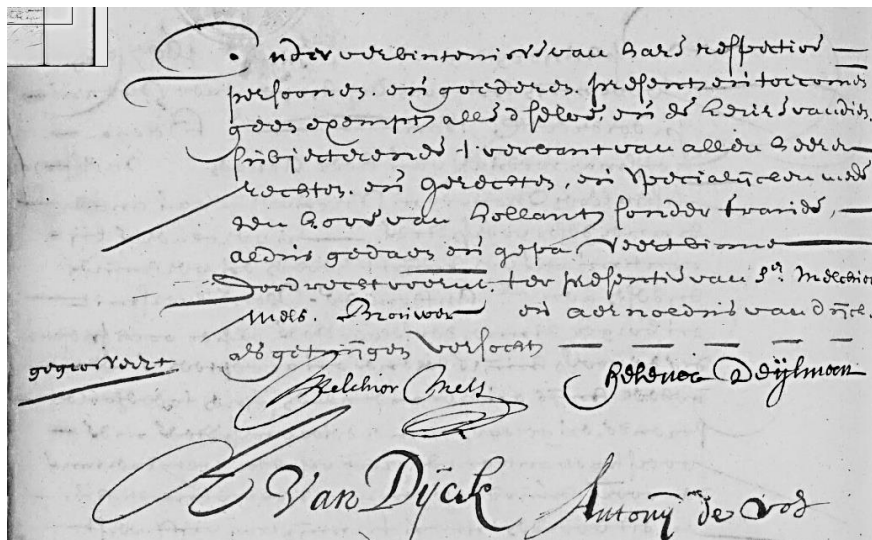 onder verbintenisse van hare respective
persoonen en goederen, presente en toecomende
geen exempt, alle deselve en de keure van dien
subjecterende t verbant van allen heeren
rechten en gerechten, en specialijcken mede
den hove van Hollant, sonder fraude,
aldus gedaen en gepasseert binnen
Dordrecht voorn. ter presentie van Sr. Melchior
Mels. Brouwer en aernoldus van dijck.
als getuijgen versocht
gegrosseert
Melchior Mels.
Helena Deijlman
A Van Dijck
Antonij de Vos